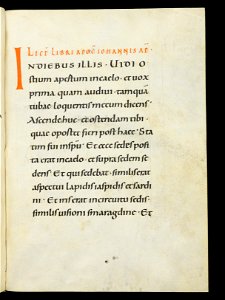 LECT LIBRI APOC IOHANNIS AP
INDIEBUS ILLIS · UIDI O
stium apertum in caelo · et uox
prima quam audiui · tamquā
tubae · loquentis mecum dicens
Ascende huc · et ostendam tibi ·
quae oportet fieri post haec · Sta
tim fui in spū · Et ecce sedes posi
ta erat in caelo · et supra sedem se
dens · Et qui sedebat · similis erat
aspectui lapidis iaspidis et sardi
ni · Et iris erat in circuitu sedis ·
similis uisioni smaragdine · Et